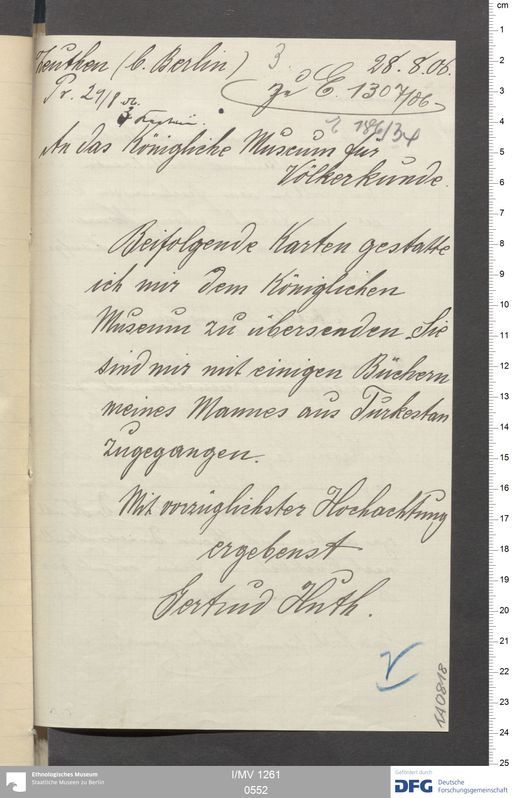 Zeuthen (b. Berlin) 3. 28. 8. 06.
Pr. 29/8 06.
zu E. 1307/06
3 Karten.
E 186/34
An das Königliche Museum für
Völkerkunde.
Beifolgende Karten gestatte
ich mir dem Königlichen
Museum zu übersenden. Sie
sind mir mit einigen Büchern
meines Mannes aus Turkestan
zugegangen.
Mit vorzüglichster Hochachtung
ergebenst
Gertrud Huth.
110818
cm
1
2
3
4
5
6
7
8
9
10
11
12
13
14
15
16
17
18
19
20
21
22
23
24
25
Ethnologisches Museum
Staatliche Museen zu Berlin
I/MV 1261
0552
Gefördert durch
DFG Deutsche
Forschungsgemeinschaft